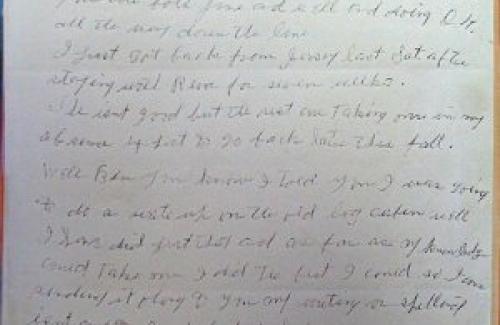 are both fine and well and doing O.K.
all the way down the line
I just got back from Jersey last Sat. after
staying with Rena for seven weeks.
She isnt good but the rest are taking over in my
absence expect to go back later this fall.
Well you know I told you I was going
to do a write up on the old log cabin well
I have did just that and as far as my
could take me I did the best I could so I am
sending it along to you my writing or spelling
isnt